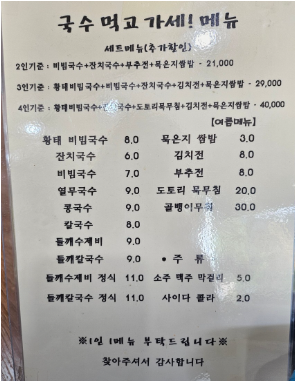 국수 먹고 가세! 메뉴
세트메뉴(추가할인)
2인기준 : 비빔국수+잔치국수+부추전+묵은지쌈밥 - 21,000
3인기준 : 황태비빔국수+잔치국수+김치전+묵은지쌈밥 - 29,000
4인기준 : 황태비빔국수+ 국수+도토리묵무침+김치전+묵은지쌈밥 - 40,000
【여름메뉴】
황태 비빔국수 8.0 묵은지 쌈밥 3.0
잔치국수 6.0 김치전 8.0
비빔국수 7.0 부추전 8.0
열무국수 9.0 도토리 묵무침 20.0
콩국수 9.0 골뱅이무침 30.0
칼국수 8.0
들깨수제비 9.0
들깨칼국수 9.0 • 주 류
들깨수제비 정식 11.0 소주 맥주 막걸리 5.0
들깨칼국수 정식 11.0 사이다 콜라 2.0
※1인 1메뉴 부탁드립니다※
찾아주셔서 감사합니다